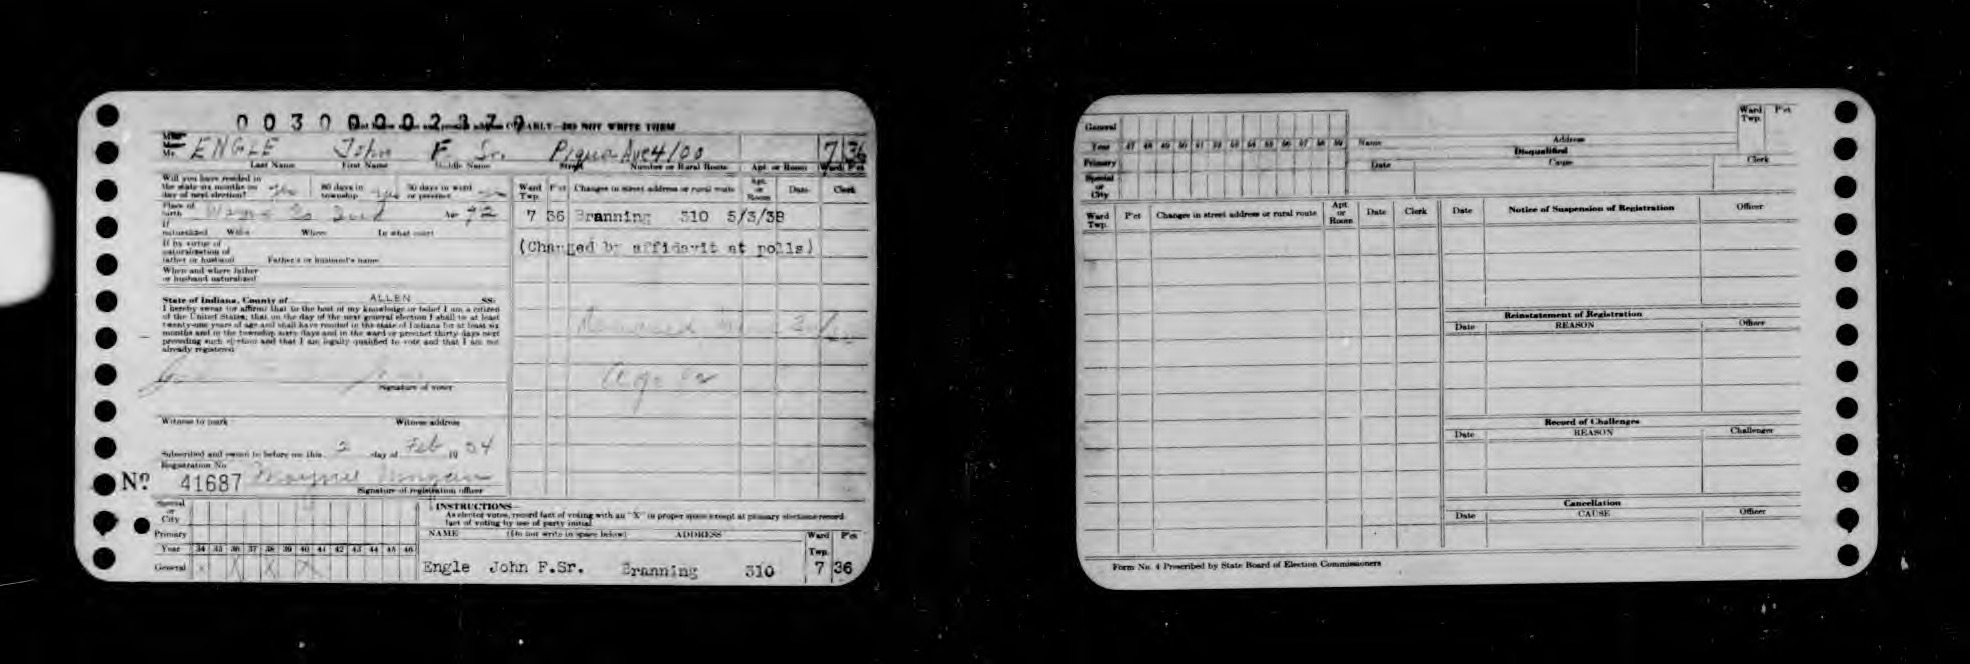 0 0 3 0 0 0 0 2 3 7 9 ARLY—DO NOT WRITE TERM
Mr. ENGLE John F Sr. Piqua Ave 4100 7 36
Last Name First Name Middle Name Street Number or Rural Route Apt. or Room Ward P'ct
Will you have resided in
the state six months on yes 60 days in yes 30 days in ward
day of next election? township or precinct
Place of
birth Wayne Co Ind Age 72
If
naturalized When Where In what court
If by virtue of
naturalization of
father or husband Father's or husband's name
When and where father
or husband naturalized
State of Indiana, County of ALLEN SS:
I hereby swear (or affirm) that to the best of my knowledge or belief I am a citizen
of the United States; that on the day of the next general election I shall be at least
twenty-one years of age and shall have resided in the state of Indiana for at least six
months and in the township sixty days and in the ward or precinct thirty days next
preceding such election and that I am legally qualified to vote and that I am not
already registered.
Signature of voter
Witness to mark Witness address
Subscribed and sworn to before me this 2 day of Feb 19 34
Registration No.
No. 41687
Signature of registration officer
Ward Twp. P'ct Changes in street address or rural route Apt. or Room Date Clerk
7 36 Branning 310 5/3/38
(Changed by affidavit at polls)
Special
or
City
Primary
Year 34 35 36 37 38 39 40 41 42 43 44 45 46
General X X X X
INSTRUCTIONS—
As elector votes, record fact of voting with an "X" in proper space except at primary elections record
fact of voting by use of party initial
NAME (Do not write in space below) ADDRESS Ward Twp. P'ct
Engle John F.Sr. Branning 310 7 36
General
Year 47 48 49 50 51 52 53 54 55 56 57 58 59
Primary
Special
or
City
Name Address Ward Twp. P'ct
Disqualified
Date Cause Clerk
Ward Twp. P'ct Changes in street address or rural route Apt. or Room Date Clerk
Date Notice of Suspension of Registration Officer
Reinstatement of Registration
Date REASON Officer
Record of Challenges
Date REASON Challenger
Cancellation
Date CAUSE Officer
Form No. 4 Prescribed by State Board of Election Commissioners